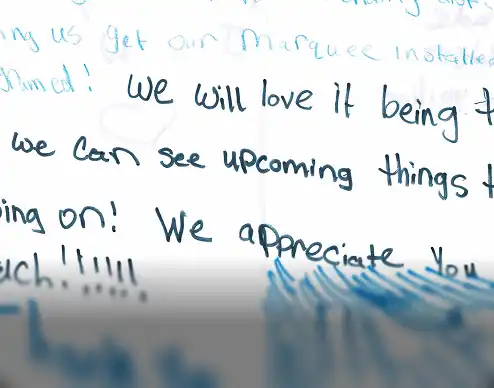 us get our Marquee installed
! We will love it being
we can see upcoming things
going on! We appreciate you
much!!!!!!